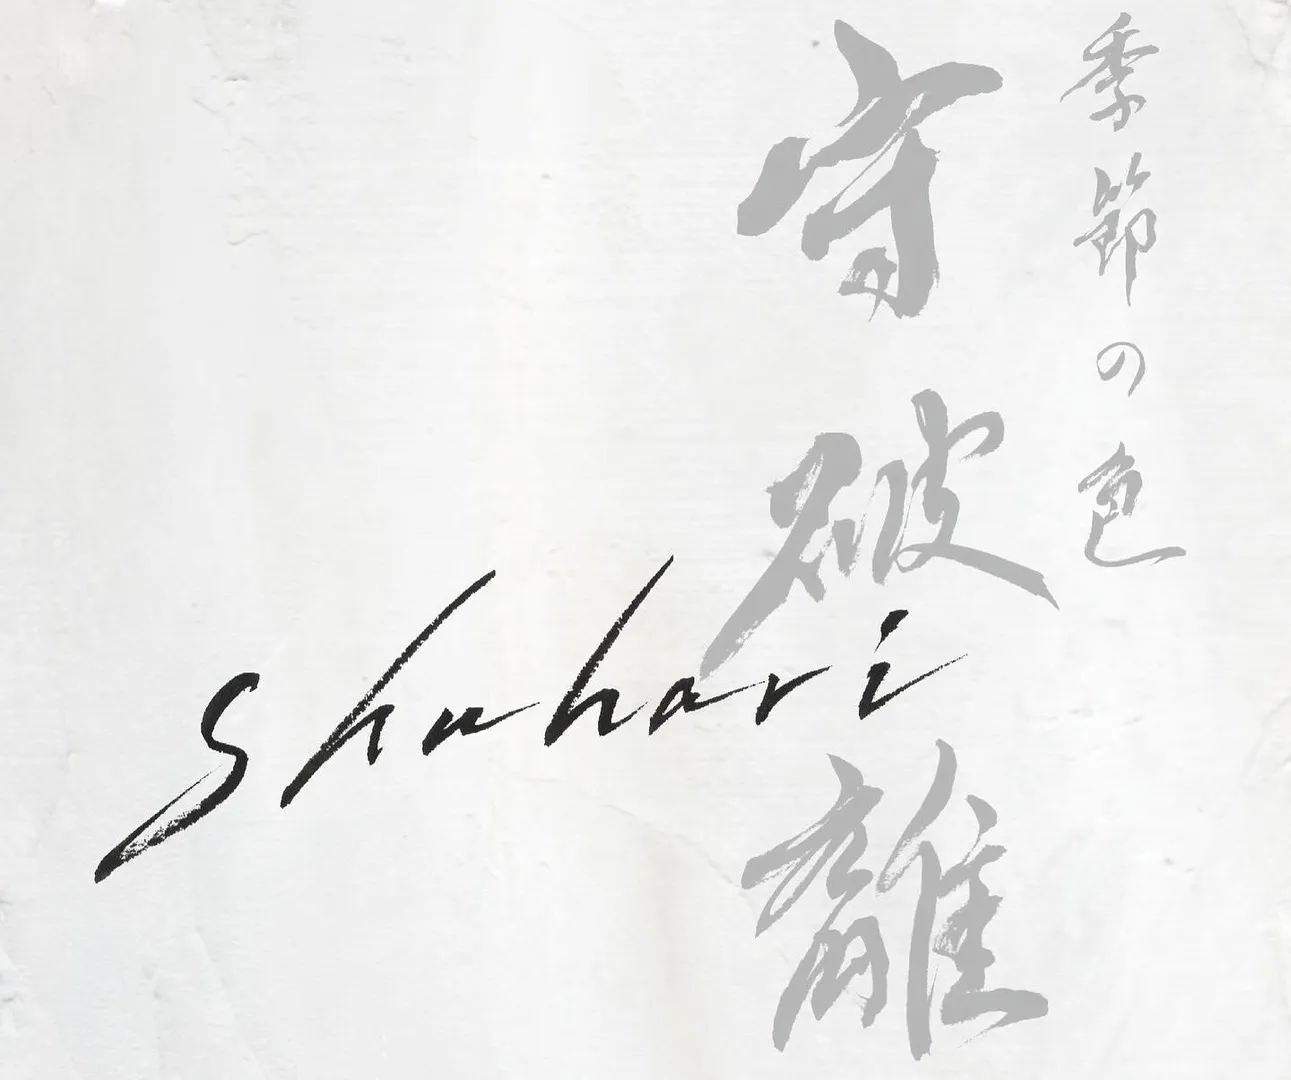 季節の色
守破離
shuhari